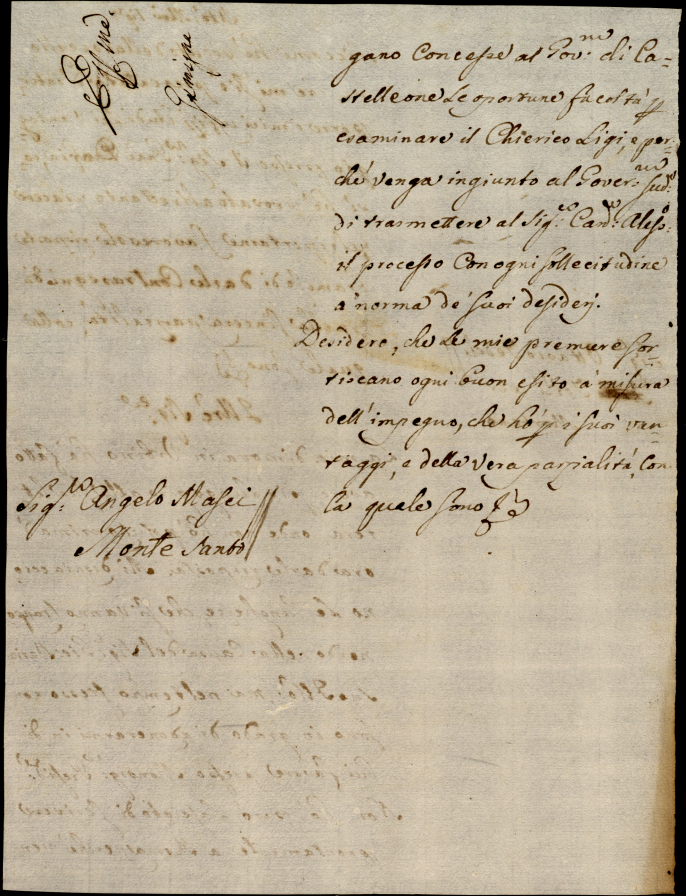 gano concesse al Gov.re di Ca=
stelleone le oportune facoltà p
esaminare il Chierico Ligi, e per=
ché venga ingiunto al Gover.re sud.o
di trasmettere al Sig.r Can.co Aless.o
il processo con ogni sollecitudine
a' norma de' suoi desiderj.
Desidero, che le mie premure sor=
tiscano ogni buon esito a' misura
dell' impegno, che hò p i suoi van=
taggi, e della vera parzialità, con
la quale sono &
Sig.r Angelo Masei
Monte Santo